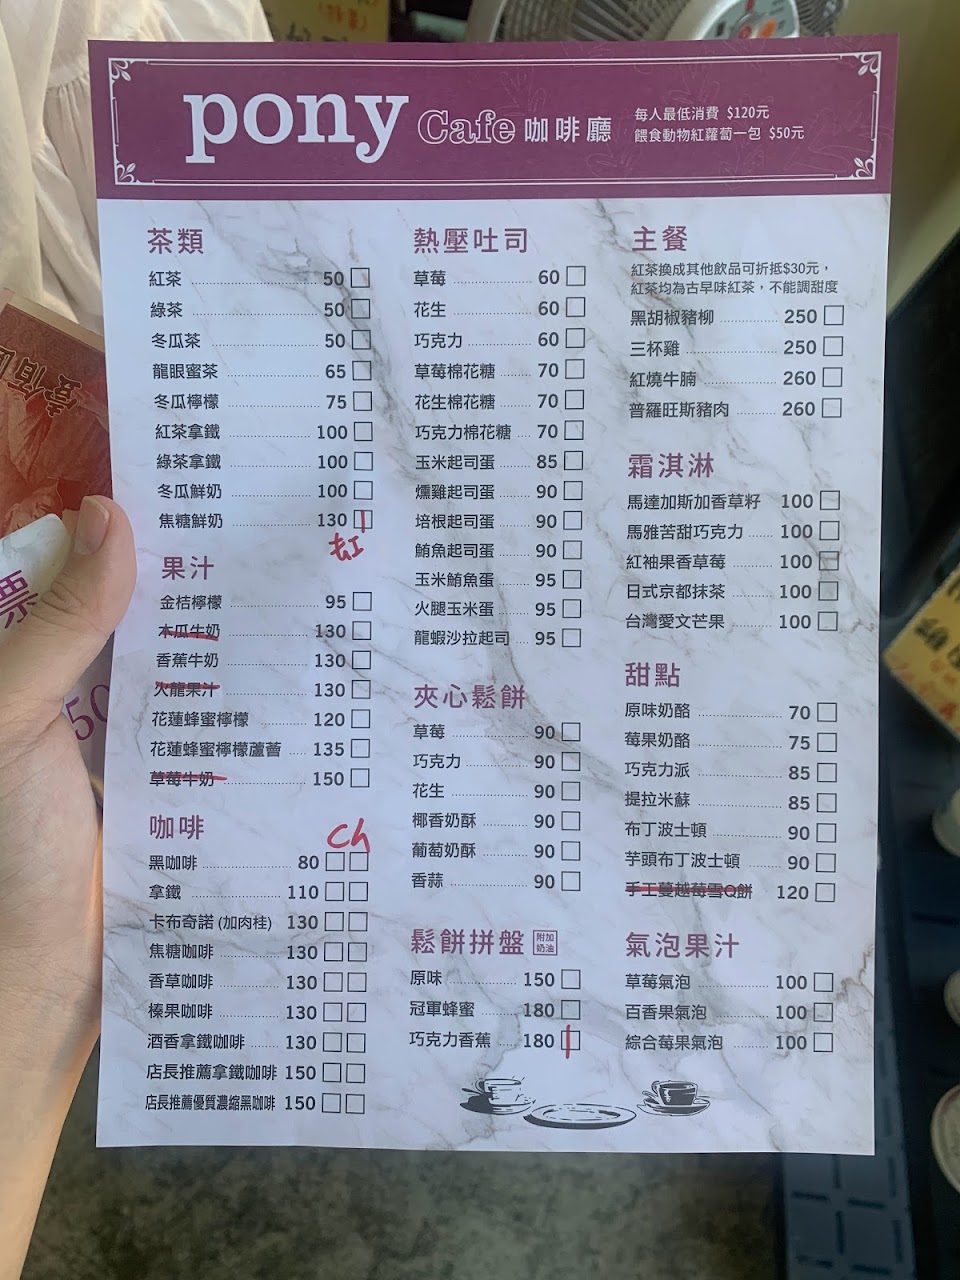 pony Cafe 咖啡廳
每人最低消費 $120元
餵食動物紅蘿蔔一包 $50元
茶類
紅茶 50
綠茶 50
冬瓜茶 50
龍眼蜜茶 65
冬瓜檸檬 75
紅茶拿鐵 100
綠茶拿鐵 100
冬瓜鮮奶 100
焦糖鮮奶 130
果汁
金桔檸檬 95
木瓜牛奶 130
香蕉牛奶 130
火龍果汁 130
花蓮蜂蜜檸檬 120
花蓮蜂蜜檸檬蘆薈 135
草莓牛奶 150
咖啡
Ch
黑咖啡 80
拿鐵 110
卡布奇諾 (加肉桂) 130
焦糖咖啡 130
香草咖啡 130
榛果咖啡 130
酒香拿鐵咖啡 130
店長推薦拿鐵咖啡 150
店長推薦優質濃縮黑咖啡 150
熱壓吐司
草莓 60
花生 60
巧克力 60
草莓棉花糖 70
花生棉花糖 70
巧克力棉花糖 70
玉米起司蛋 85
燻雞起司蛋 90
培根起司蛋 90
鮪魚起司蛋 90
玉米鮪魚蛋 95
火腿玉米蛋 95
龍蝦沙拉起司 95
夾心鬆餅
草莓 90
巧克力 90
花生 90
椰香奶酥 90
葡萄奶酥 90
香蒜 90
鬆餅拼盤 附加奶油
原味 150
冠軍蜂蜜 180
巧克力香蕉 180
主餐
紅茶換成其他飲品可折抵$30元，
紅茶均為古早味紅茶，不能調甜度
黑胡椒豬柳 250
三杯雞 250
紅燒牛腩 260
普羅旺斯豬肉 260
霜淇淋
馬達加斯加香草籽 100
馬雅苦甜巧克力 100
紅袖果香草莓 100
日式京都抹茶 100
台灣愛文芒果 100
甜點
原味奶酪 70
莓果奶酪 75
巧克力派 85
提拉米蘇 85
布丁波士頓 90
芋頭布丁波士頓 90
手工蔓越莓雪Q餅 120
氣泡果汁
草莓氣泡 100
百香果氣泡 100
綜合莓果氣泡 100
票
50